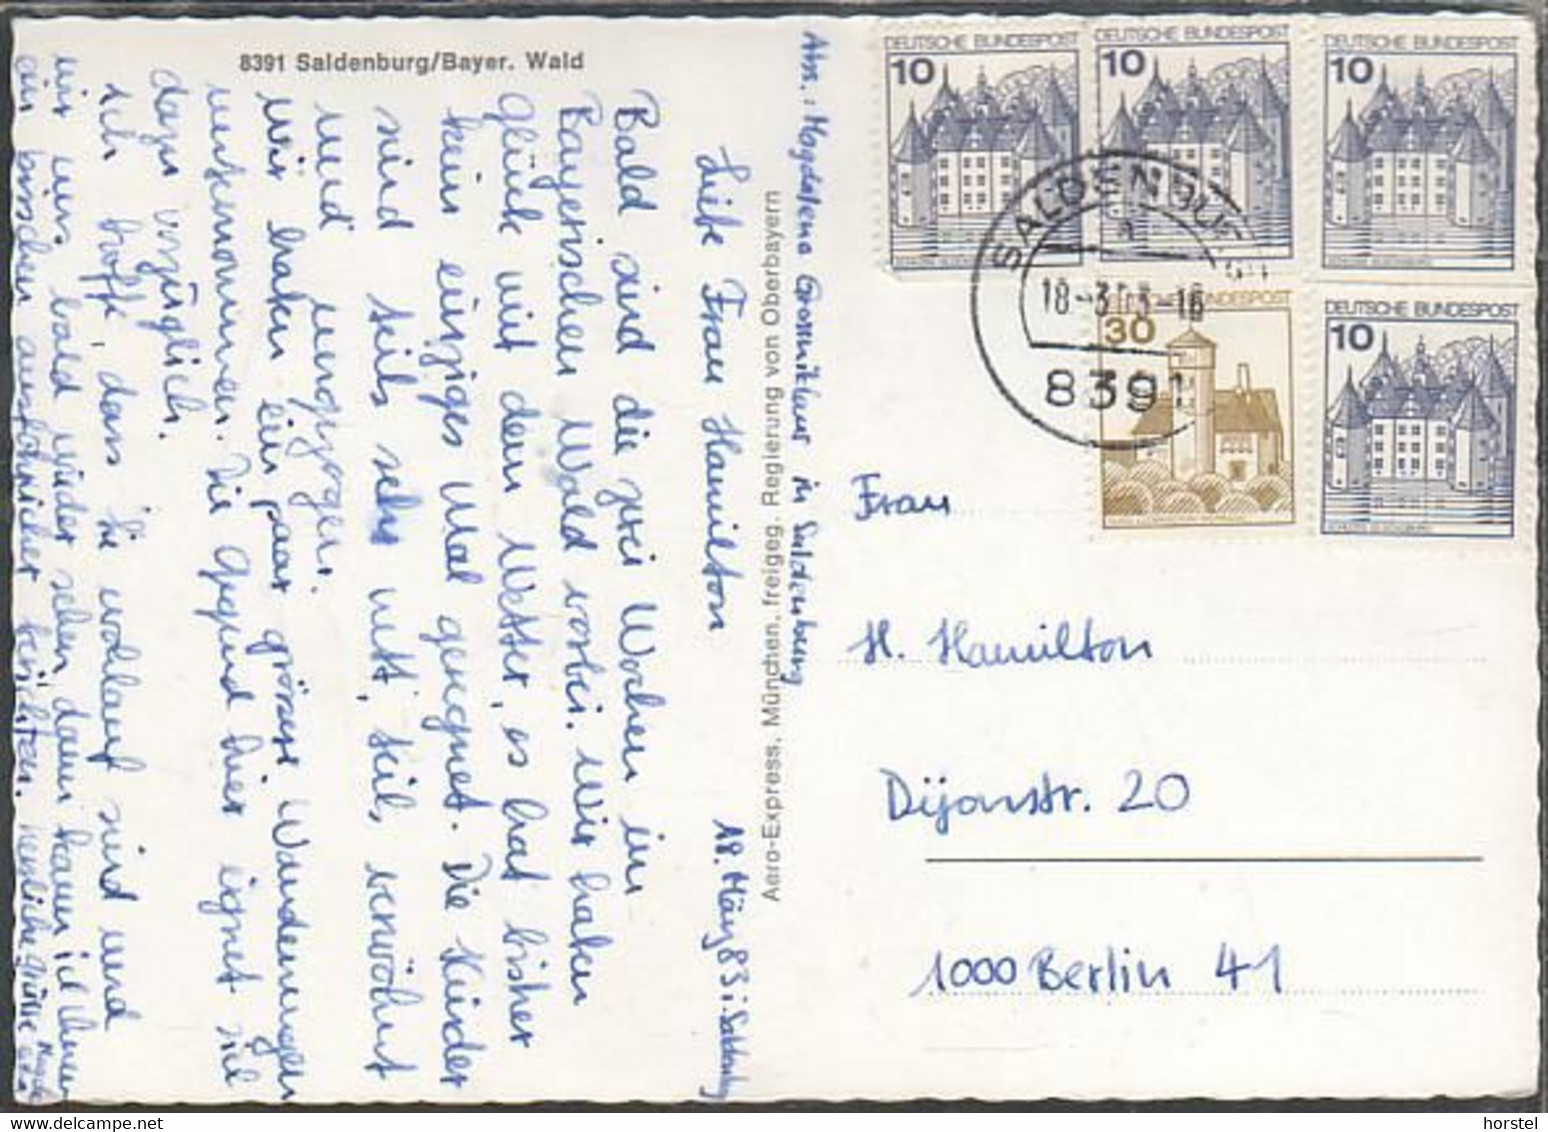 8391 Saldenburg/Bayer. Wald
Abs.: Magdalena Grossnikaus in Saldenburg
18. März 83, Saldenburg
Liebe Frau Hamilton
Bald sind die zwei Wochen im
Bayerischen Wald vorbei. Wir haben
Glück mit dem Wetter, es hat bisher
kein einziges Mal geregnet. Die Kinder
sind teils sehr nett, teils verwöhnt
und ungezogen.
Wir haben ein paar grössere Wanderungen
unternommen. Die Gegend hier eignet sich
dazu vorzüglich.
Ich hoffe, dass Sie wohlauf sind und
wir uns bald wieder sehen, dann kann ich Ihnen
ein bisschen ausführlicher berichten. Herzliche Grüsse
Aero-Express, München, freigeg. Regierung von Oberbayern
DEUTSCHE BUNDESPOST
10
DEUTSCHE BUNDESPOST
10
DEUTSCHE BUNDESPOST
10
DEUTSCHE BUNDESPOST
30
DEUTSCHE BUNDESPOST
10
SALDENBURG
18-3
8391
Frau
H. Hamilton
Dijonstr. 20
1000 Berlin 41
horstel